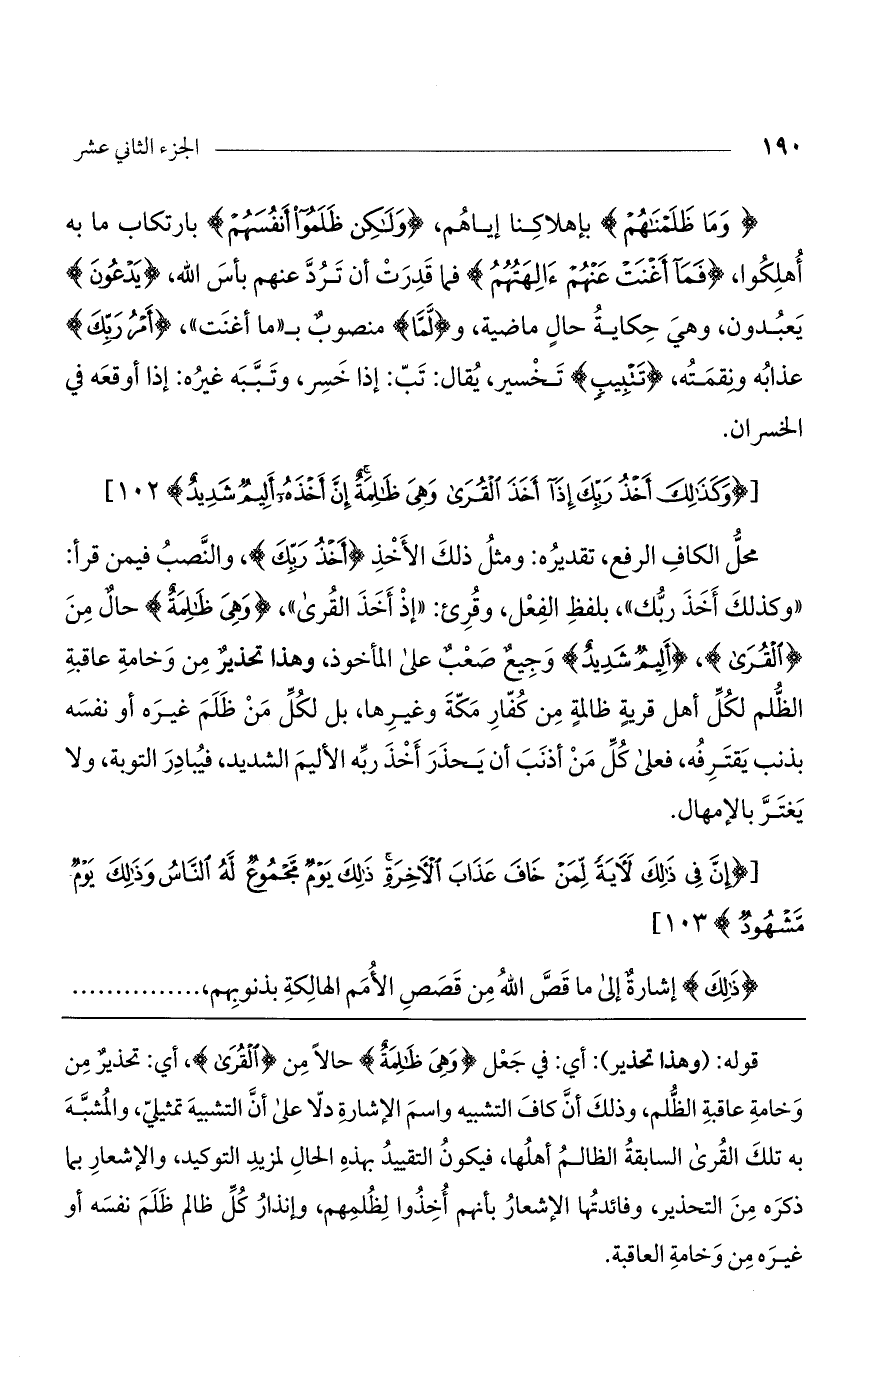 ١٩٠ ــــــــــــــــــــــــــــــــ الجزء الثاني عشر
﴿ وَمَا ظَلَمْنَٰهُمْ ﴾ بإهلاكِـنا إيـاهُم، ﴿وَلَٰكِن ظَلَمُوٓا۟ أَنفُسَهُمْ﴾ بارتكاب ما به
أُهلِكُوا، ﴿فَمَآ أَغْنَتْ عَنْهُمْ ءَالِهَتُهُمُ ﴾ فما قَدِرَتْ أن تَـرُدَّ عنهم بأسَ الله، ﴿يَدْعُونَ ﴾
يَعبُـدون، وهيَ حِكايـةُ حالٍ ماضية، و﴿لَّمَّا﴾ منصوبٌ بـ«ما أغنَت»، ﴿أَمْرُ رَبِّكَ ﴾
عذابُه ونِقمَـتُه، ﴿تَتْبِيبٍ﴾ تَـخْسير، يُقال: تَبّ: إذا خَسِر، وتَـبَّـبَه غيرُه: إذا أوقعَه في
الخسران.
[﴿وَكَذَٰلِكَ أَخْذُ رَبِّكَ إِذَآ أَخَذَ ٱلْقُرَىٰ وَهِىَ ظَٰلِمَةٌ ۚ إِنَّ أَخْذَهُۥٓ أَلِيمٌ شَدِيدٌ﴾ ١٠٢]
محلُّ الكافِ الرفع، تقديرُه: ومثلُ ذلكَ الأَخْذِ ﴿أَخْذُ رَبِّكَ ﴾، والنَّصبُ فيمن قرأ:
«وكذلكَ أَخَذَ ربُّك»، بلفظِ الفِعْل، وقُرِئ: «إذْ أَخَذَ القُرىٰ»، ﴿وَهِىَ ظَٰلِمَةٌ ﴾ حالٌ مِنَ
﴿ٱلْقُـرَىٰ ﴾، ﴿أَلِيمٌ شَدِيدٌ﴾ وَجِيعٌ صَعْبٌ علىٰ المأخوذ، وهذا تحذيرٌ مِن وَخامةِ عاقبةِ
الظُّلم لكُلِّ أهل قريةٍ ظالمةٍ مِن كُفّارِ مَكّةَ وغيـرِها، بل لكُلِّ مَنْ ظَلَمَ غيـرَه أو نفسَه
بذنب يَقتَـرِفُه، فعلىٰ كُلِّ مَنْ أذنَبَ أن يَـحذَرَ أَخْذَ ربِّه الأليمَ الشديد، فيُبادِرَ التوبة، ولا
يَغتَـرَّ بالإمهال.
[﴿إِنَّ فِى ذَٰلِكَ لَءَايَةً لِّمَنْ خَافَ عَذَابَ ٱلْءَاخِرَةِ ۚ ذَٰلِكَ يَوْمٌ مَّجْمُوعٌ لَّهُ ٱلنَّاسُ وَذَٰلِكَ يَوْمٌ
مَّشْهُودٌ ﴾ ١٠٣]
﴿ذَٰلِكَ ﴾ إشارةٌ إلىٰ ما قَصَّ اللهُ مِن قَصَصِ الأُمَم الهالِكةِ بذنوبِهم،...............
قوله: (وهذا تحذير): أي: في جَعْل ﴿وَهِىَ ظَٰلِمَةٌ ﴾ حالاً مِن ﴿ٱلْقُرَىٰ ﴾، أي: تحذيرٌ مِن
وَخامةِ عاقبةِ الظُّلم، وذلكَ أنَّ كافَ التشبيه واسمَ الإشارةِ دلّا علىٰ أنَّ التشبيهَ تمثيليّ، والمُشبَّـهَ
به تلكَ القُرىٰ السابقةُ الظالـمُ أهلُها، فيكونُ التقييدُ بهذهِ الحالِ لمزيدِ التوكيد، والإشعارِ بما
ذكرَه مِنَ التحذير، وفائدتُها الإشعارُ بأنهم أُخِذُوا لِظُلمِهم، وإنذارُ كُلِّ ظالم ظَلَمَ نفسَه أو
غيـرَه مِن وَخامةِ العاقبة.